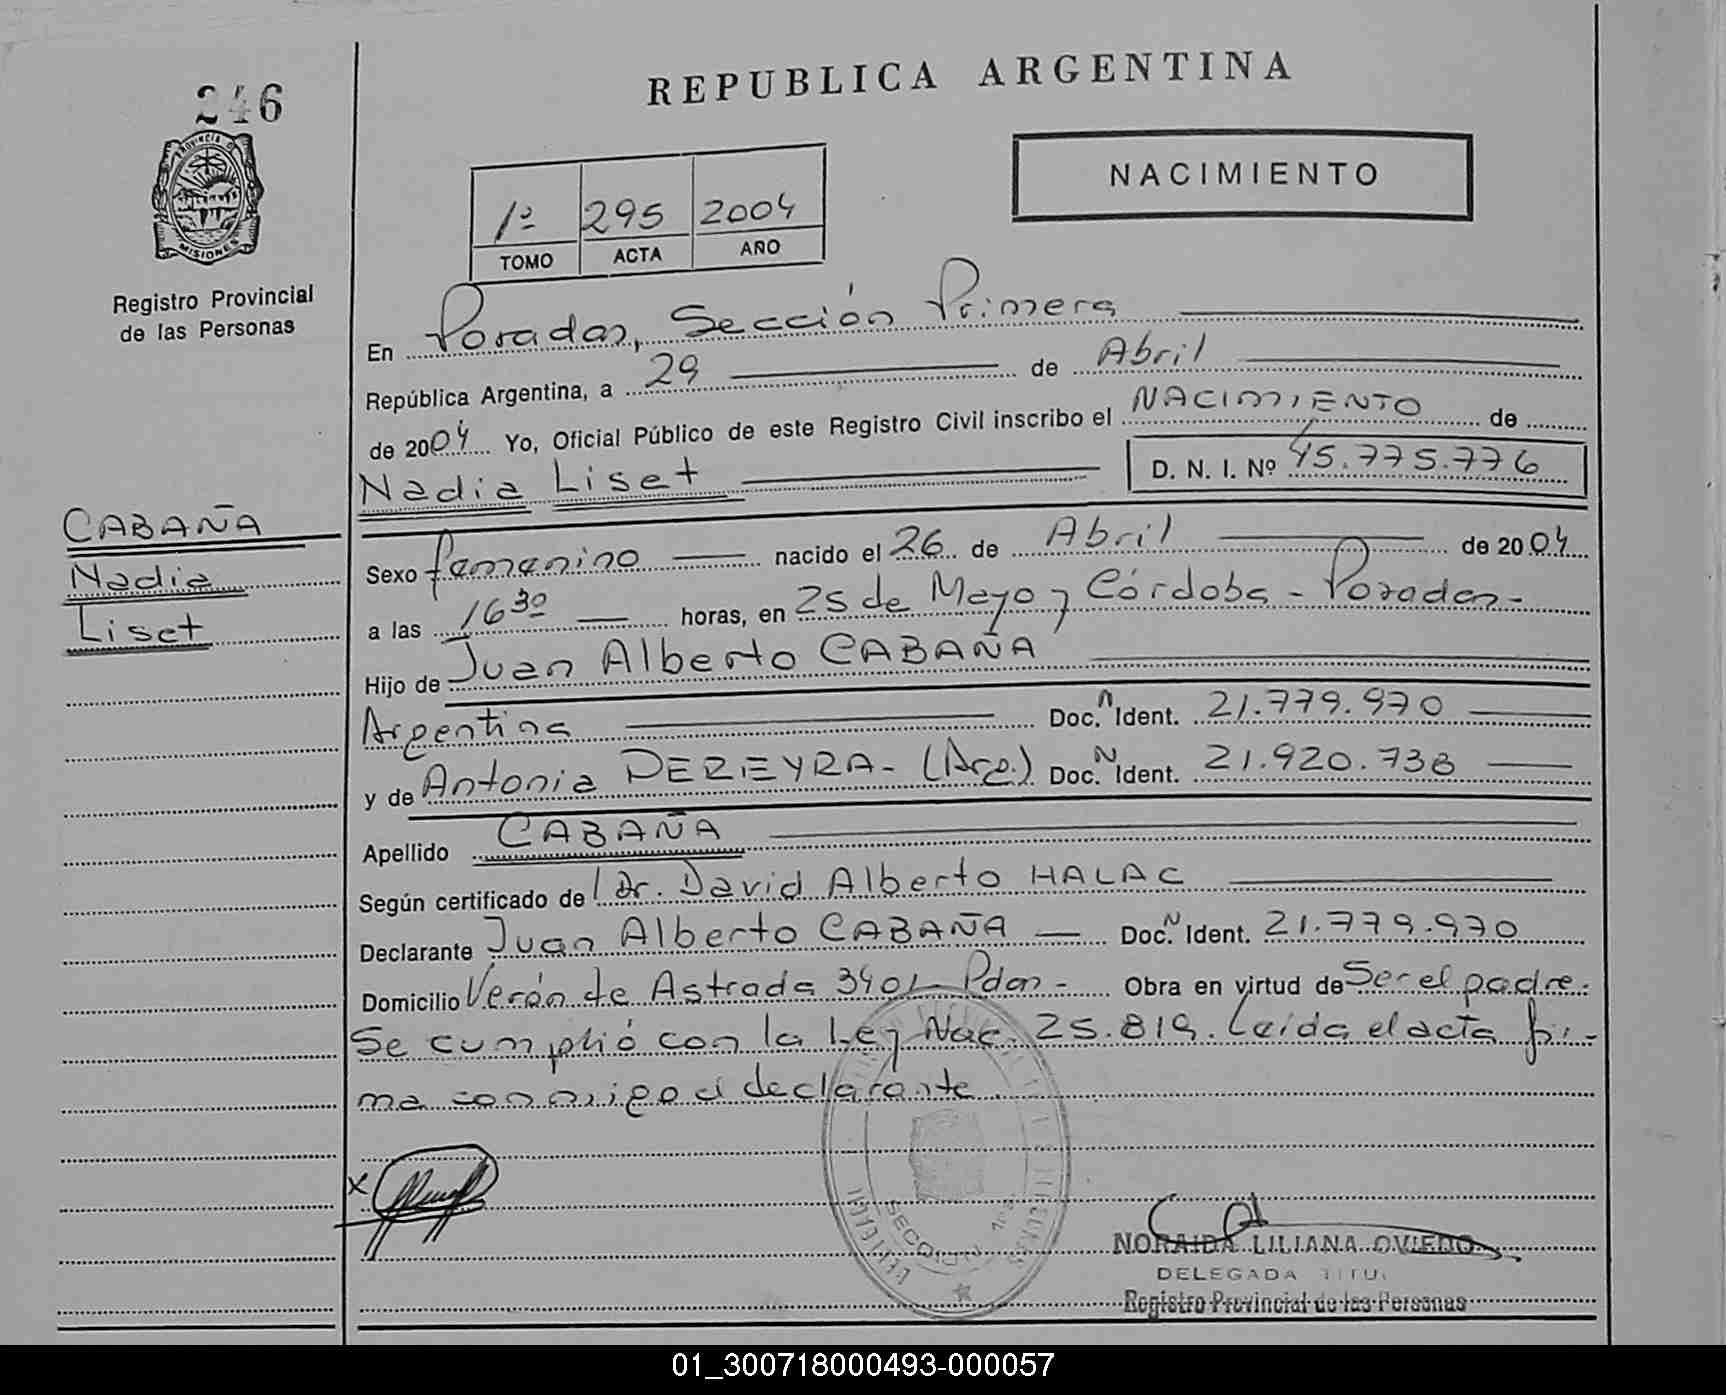 246
PROVINCIA D
MISIONES
Registro Provincial
de las Personas
REPUBLICA ARGENTINA
NACIMIENTO
1º 295 2004
TOMO ACTA AÑO
En Posadas, Sección Primera
República Argentina, a 29 de Abril
de 2004 Yo, Oficial Público de este Registro Civil inscribo el NACIMIENTO de
Nadia Liset D. N. I. Nº 45.775.776
CABAÑA
Nadia
Liset
Sexo femenino nacido el 26 de Abril de 2004
a las 16 30 horas, en 25 de Mayo y Córdoba - Posadas -
Hijo de Juan Alberto CABAÑA
Argentina Doc. N Ident. 21.779.970
y de Antonia PEREYRA - (Arg.) Doc. N Ident. 21.920.738
Apellido CABAÑA
Según certificado de Dr. David Alberto HALAC
Declarante Juan Alberto CABAÑA Doc. N Ident. 21.779.970
Domicilio Verón de Astrada 3401 - Pdas - Obra en virtud de Ser el padre.
Se cumplió con la Ley Nac. 25.819. Leída el acta fir-
ma conmigo el declarante.
x
SECCION 1ra
NORAIDA LILIANA OVIEDO
DELEGADA TITU
Registro Provincial de las Personas
01_300718000493-000057